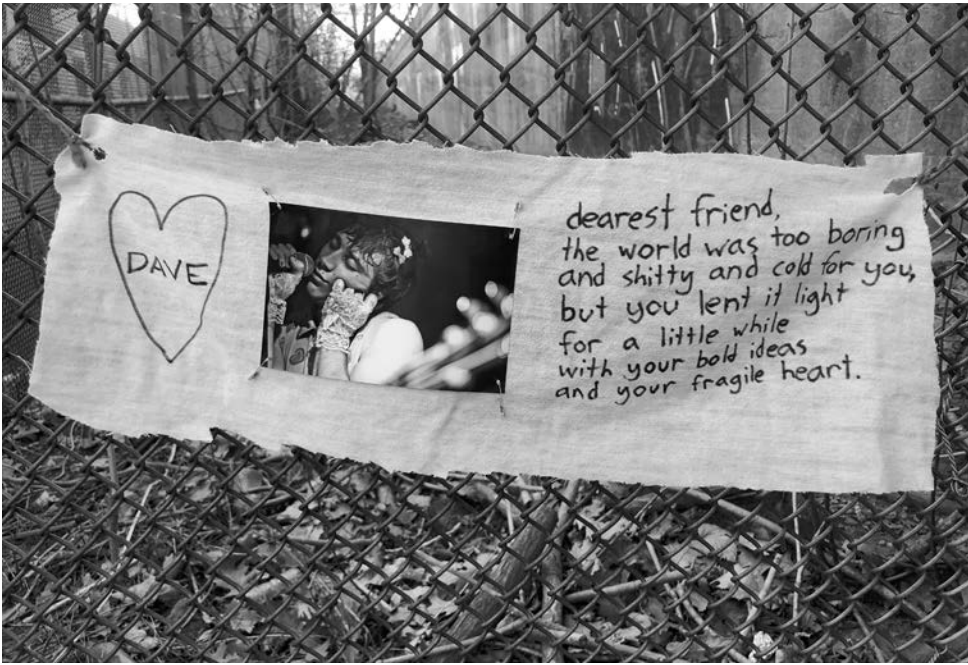 DAVE
dearest friend,
the world was too boring
and shitty and cold for you,
but you lent it light
for a little while
with your bold ideas
and your fragile heart.